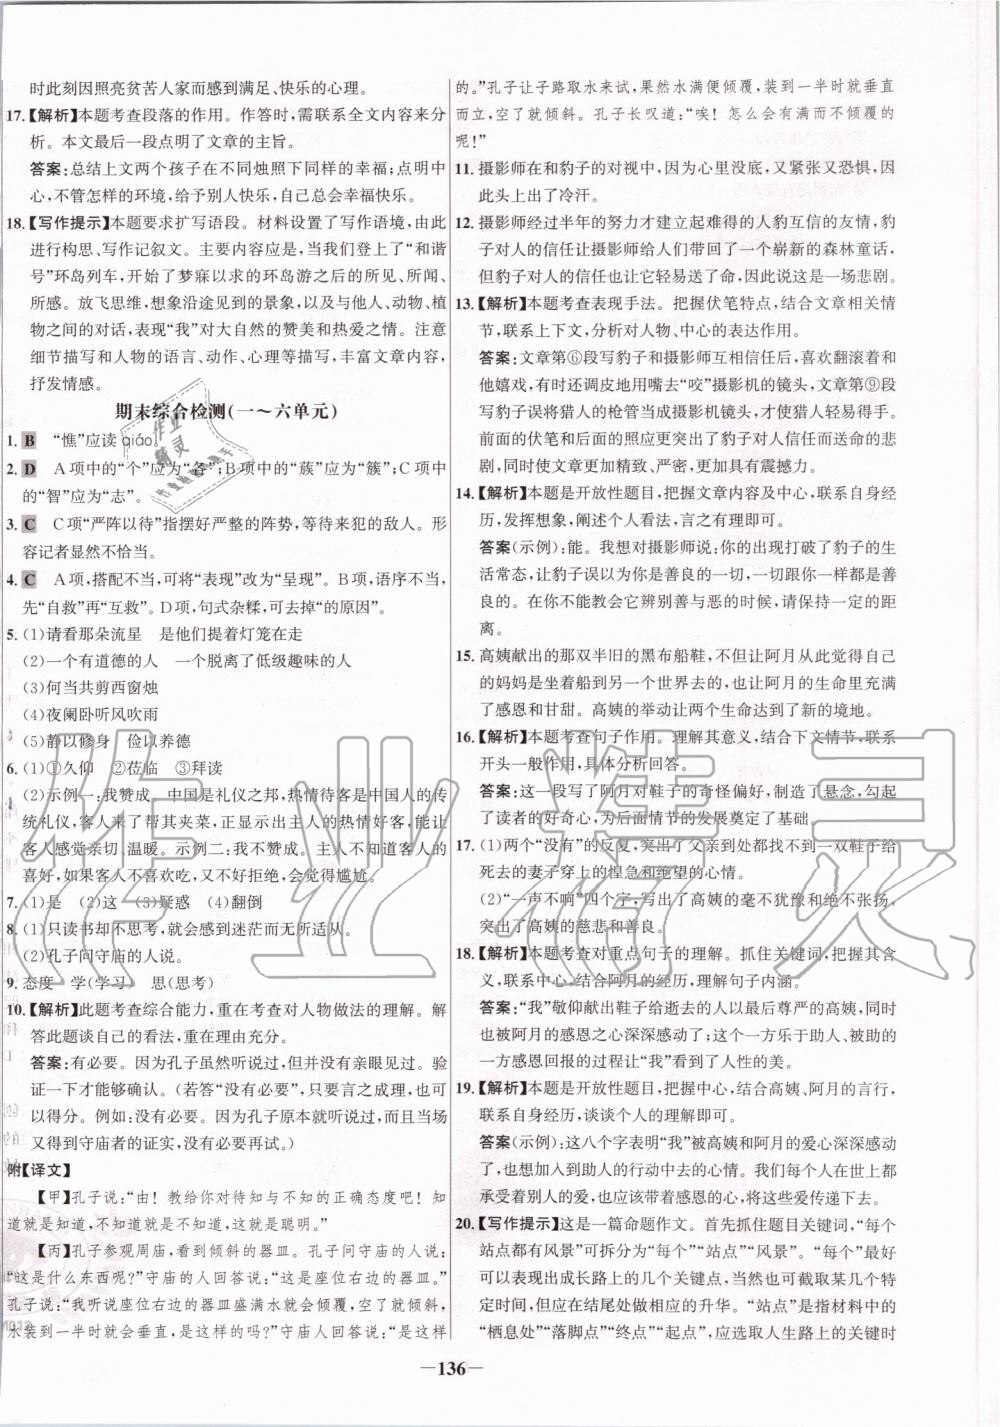 时此刻因照亮贫苦人家而感到满足、快乐的心理。
17.【解析】本题考查段落的作用。作答时,需联系全文内容来分
析。本文最后一段点明了文章的主旨。
答案:总结上文两个孩子在不同烛照下同样的幸福;点明中
心,不管怎样的环境,给予别人快乐,自己总会幸福快乐。
18.【写作提示】本题要求扩写语段。材料设置了写作语境,由此
进行构思、写作记叙文。主要内容应是,当我们登上了“和谐
号”环岛列车,开始了梦寐以求的环岛游之后的所见、所闻、
所感。放飞思维,想象沿途见到的景象,以及与他人、动物、植
物之间的对话,表现“我”对大自然的赞美和热爱之情。注意
细节描写和人物的语言、动作、心理等描写,丰富文章内容,
抒发情感。
期末综合检测(一～六单元)
1. B “憔”应读 qiáo。
2. D A项中的“个”应为“各”;B项中的“蔟”应为“簇”;C项中
的“智”应为“志”。
3. C C项“严阵以待”指摆好严整的阵势,等待来犯的敌人。形
容记者显然不恰当。
4. C A项,搭配不当,可将“表现”改为“呈现”。B项,语序不当,
先“自救”再“互救”。D项,句式杂糅,可去掉“的原因”。
5. (1)请看那朵流星 是他们提着灯笼在走
(2)一个有道德的人 一个脱离了低级趣味的人
(3)何当共剪西窗烛
(4)夜阑卧听风吹雨
(5)静以修身 俭以养德
6. (1)①久仰 ②莅临 ③拜读
(2)示例一:我赞成。中国是礼仪之邦,热情待客是中国人的传
统礼仪,客人来了帮其夹菜,正显示出主人的热情好客,能让
客人感觉亲切、温暖。示例二:我不赞成。主人不知道客人的
喜好,如果客人不喜欢吃,又不好拒绝,会觉得尴尬。
7. (1)是 (2)这 (3)疑惑 (4)翻倒
8. (1)只读书却不思考,就会感到迷茫而无所适从。
(2)孔子问守庙的人说。
9. 态度 学(学习) 思(思考)
10.【解析】此题考查综合能力,重在考查对人物做法的理解。解
答此题谈自己的看法,重在理由充分。
答案:有必要。因为孔子虽然听说过,但并没有亲眼见过。验
证一下才能够确认。(若答“没有必要”,只要言之成理,也可
得分。例如:没有必要。因为孔子原本就听说过,而且现在
又得到守庙者的证实,没有必要再试。)
附【译文】
【甲】孔子说:“由!教给你对待知与不知的正确态度吧!知
道就是知道,不知道就是不知道,这就是聪明。”
【丙】孔子参观周庙,看到倾斜的器皿。孔子问守庙的人说:
“这是什么东西呢?”守庙的人回答说:“这是座位右边的器皿。”
孔子说:“我听说座位右边的器皿盛满水就会倾覆,空了就倾斜,
水装到一半时就会垂直,是这样的吗?”守庙的人回答说:“是这样
的。”孔子让子路取水来试,果然水满便倾覆,装到一半时就垂直
而立,空了就倾斜。孔子长叹道:“唉!怎么会有满而不倾覆的
呢!”
11. 摄影师在和豹子的对视中,因为心里没底,又紧张又恐惧,因
此头上出了冷汗。
12. 摄影师经过半年的努力才建立起难得的人豹互信的友情,豹
子对人的信任让摄影师给人们带回了一个崭新的森林童话,
但豹子对人的信任也让它轻易送了命,因此说这是一场悲剧。
13.【解析】本题考查表现手法。把握伏笔特点,结合文章相关情
节,联系上下文,分析对人物、中心的表达作用。
答案:文章第⑥段写豹子和摄影师互相信任后,喜欢翻滚着和
他嬉戏,有时还调皮地用嘴去“咬”摄影机的镜头,文章第⑨段
写豹子误将猎人的枪管当成摄影机镜头,才让猎人轻易得手。
前面的伏笔和后面的照应更突出了豹子因信任而送命的悲
剧,同时使文章更加精致、严密,更加具有震撼力。
14.【解析】本题是开放性题目,把握文章内容及中心,联系自身经
历,发挥想象,阐述个人看法,言之有理即可。
答案(示例):能。我想对摄影师说:你的出现打破了豹子的生
活常态,让豹子误以为善良的一切,一切都是善
良的。在你不能教会它辨别善与恶的时候,请保持一定的距
离。
15. 高姨献出的那双半旧的黑布船鞋,不但让阿月从此觉得自己
的妈妈是坐着船到另一个世界去的,也让阿月的生命里充满
了感恩和甘甜。高姨的举动让两个生命达到了新的境地。
16.【解析】本题考查句子作用。理解其真意,结合下文情节,联系
开头一般作用,具体分析回答。
答案:这一段写了阿月对鞋子的奇怪偏好,制造了悬念,勾起
了读者的好奇心,为后面情节的发展奠定了基础。
17. (1)两个“没有”的反复,突出了父亲到处都找不到一双鞋子给
死去的妻子穿上的惶急和绝望的心情。
(2)“一声不响”四个字,写出了高姨的毫不犹豫和绝不张扬,
突出了高姨的慈悲和善良。
18.【解析】本题考查对重点句子的理解。抓住关键词,把握其含
义,联系中心,结合阿月的经历,理解人物情感即可。
答案:“我”敬仰献出鞋子给逝去的人以最后尊严的高姨,同时
也被阿月的感恩之心深深感动了;这个一方乐于助人、被助的
一方感恩回报的过程让“我”看到了人性的美。
19.【解析】本题是开放性题目,把握中心,结合高姨、阿月的言行,
联系自身经历,谈谈个人的理解即可。
答案(示例):这八个字表明“我”被高姨和阿月的爱心深深感动
了,想立即投入到助人的行动中去的心情。我们个人在世上都
承受着别人的爱,也应该带着感恩的心,将这些爱传递下去。
20.【写作提示】这是一篇命题作文。首先抓住题目关键词,“每个
站点都有风景”可关注“每个”“站点”“风景”。“每个”最好
可以表现出成长路上的几个关键点,当然也可以只着力写一个
特定时间,但应在结尾处做相应的升华。“站点”是指材料中的
“栖息处”“落脚点”“终点”“起点”,应选取人生路上的关键时
—136—
作业精灵